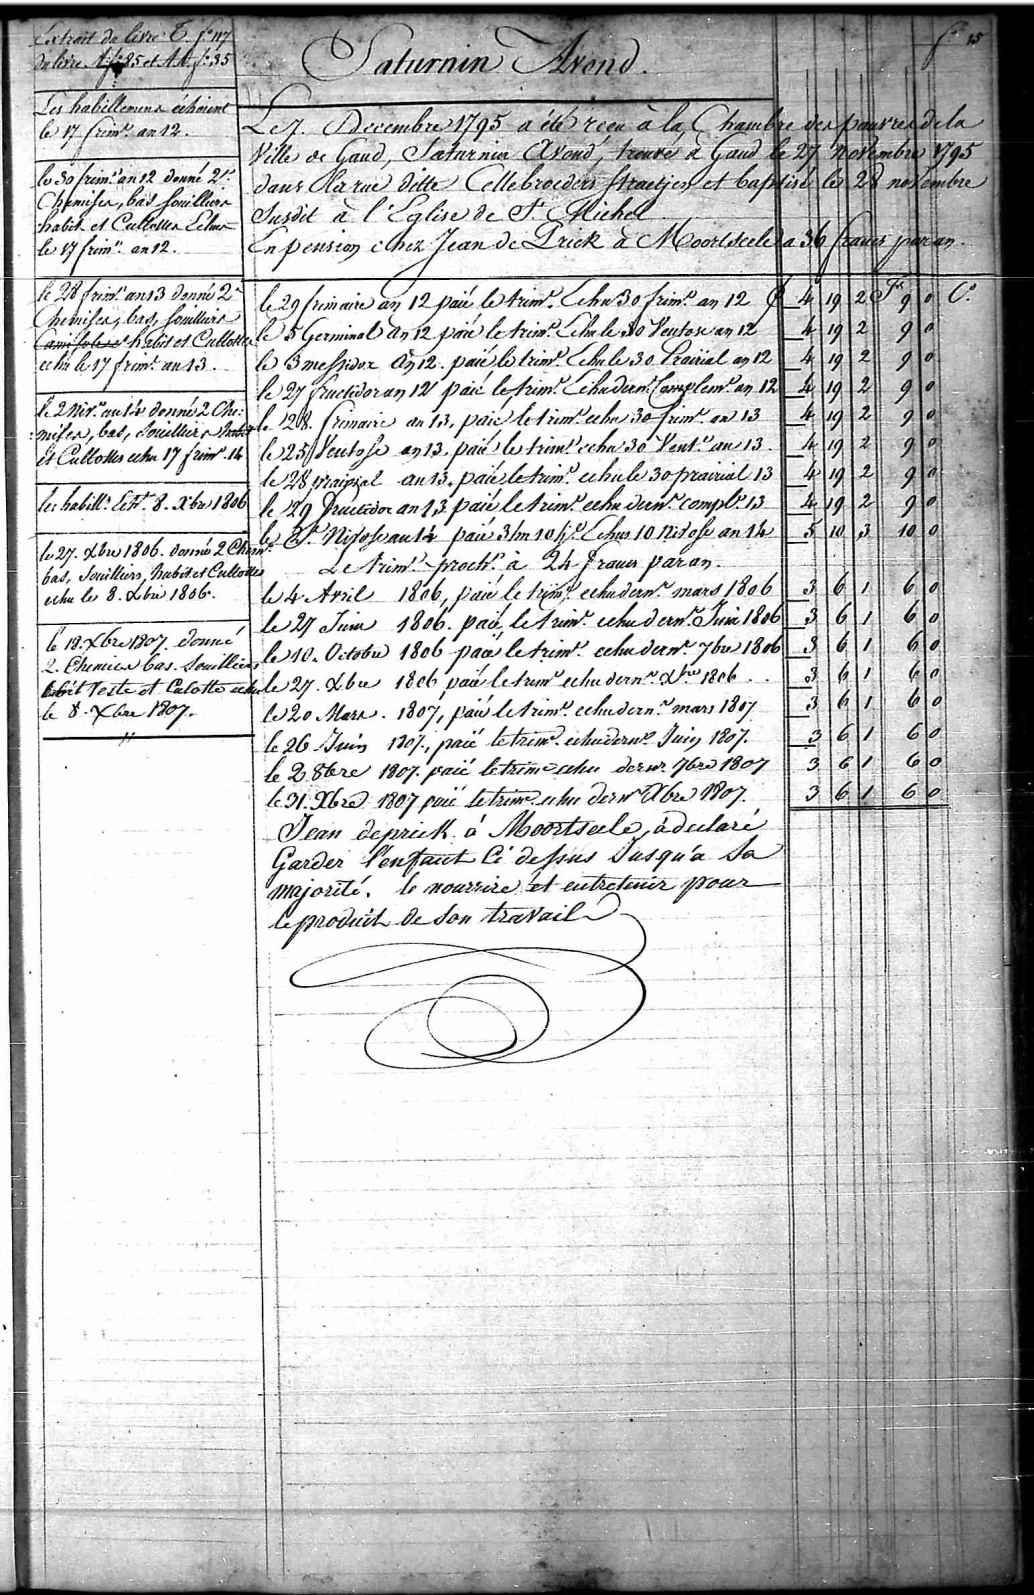 fo 15
Extrait du livre T. fo 117
du livre A fo 85 et AA fo 35
Saturnin Avond.
Les habillemens échoient
le 17 frimre an 12.
le 30 frimre an 12 donné 2.
Chemises, bas souilliers
habit et Cullottes Echus
le 17 frimre an 12.
le 28 frimre an 13 donné 2
Chemises, bas, souilliers
Camisoles habit et Cullottes
echu le 17 frimre an 13.
le 2 Nivre an 14 donné 2 Che:
:mises, bas, souilliers habit
et Cullottes echu 17 frimre 14
les habillts 8. Xbre 1806
le 27. Xbre 1806. donné 2 Chem.
bas, Souilliers, habit et Cullottes
echu les 8. Xbre 1806.
le 18. Xbre 1807. donné
2. Chemises bas. Souilliers
habit Veste et Culotte echu
le 8. Xbre 1807.
Le 7. Decembre 1795 a été reçu à la Chambre des pauvres de la
Ville de Gand, Saturnin Avond, trouvé à Gand le 27 Novembre 1795
dans la rue ditte Cellebroeders straetjen et baptisé le 28 novembre
Susdit à l'Eglise de St Michel
En pension chez Jean de Prick à Moortseele a 36 francs par an.
le 29 frimaire an 12 paié le trimre Echu 30 frimre an 12 £ 4 19 2 Frs 9 0 Cs
le 5 Germinal an 12 paié le trimre Echu le 30 Ventose an 12 4 19 2 9 0
le 3 messidor an 12. paié le trimre Echu le 30 Prairial an 12 4 19 2 9 0
le 27 fructidor an 12 paié le trimre echu dernr Complemre an 12 4 19 2 9 0
le 28. frimaire an 13, paié le trimre echu 30 frimre an 13 4 19 2 9 0
le 25 Ventose an 13, paié le trimre echu 30 Ventre an 13 4 19 2 9 0
le 28 prairial an 13, paié le trimre echu le 30 prairial 13 4 19 2 9 0
le 29 fructidor an 13 paié le trimre echu dernr complre 13 4 19 2 9 0
le Nivose an 14 paié 3 Im 10 jrs Echus 10 Nivose an 14 5 10 3 10 0
Le trimre prochn à 24 francs par an.
le 4 Avril 1806, paié le trimre echu dernr mars 1806 3 6 1 6 0
le 27 Juin 1806. paié le trimre echu dernr Juin 1806 3 6 1 6 0
le 10. Octobre 1806 paié le trimre echu dernr 7bre 1806 3 6 1 6 0
le 27. Xbre 1806 paié le trimre echu dernr Xbre 1806 . . 3 6 1 6 0
le 20 Mars. 1807, paié le trimre echu dernr mars 1807 3 6 1 6 0
le 26 Juin 1807, paié le trimre echu dernr Juin 1807. 3 6 1 6 0
le 2 8bre 1807. paié le trimre echu dernr 7bre 1807 3 6 1 6 0
le 31. Xbre 1807 paié le trimre echu dernr Xbre 1807. 3 6 1 6 0
Jean deprick à Moortseele, à declaré
Garder l'enfant Ci dessus Jusqu'a sa
majorité. le nourrire et entretenir pour
le produit de son travail